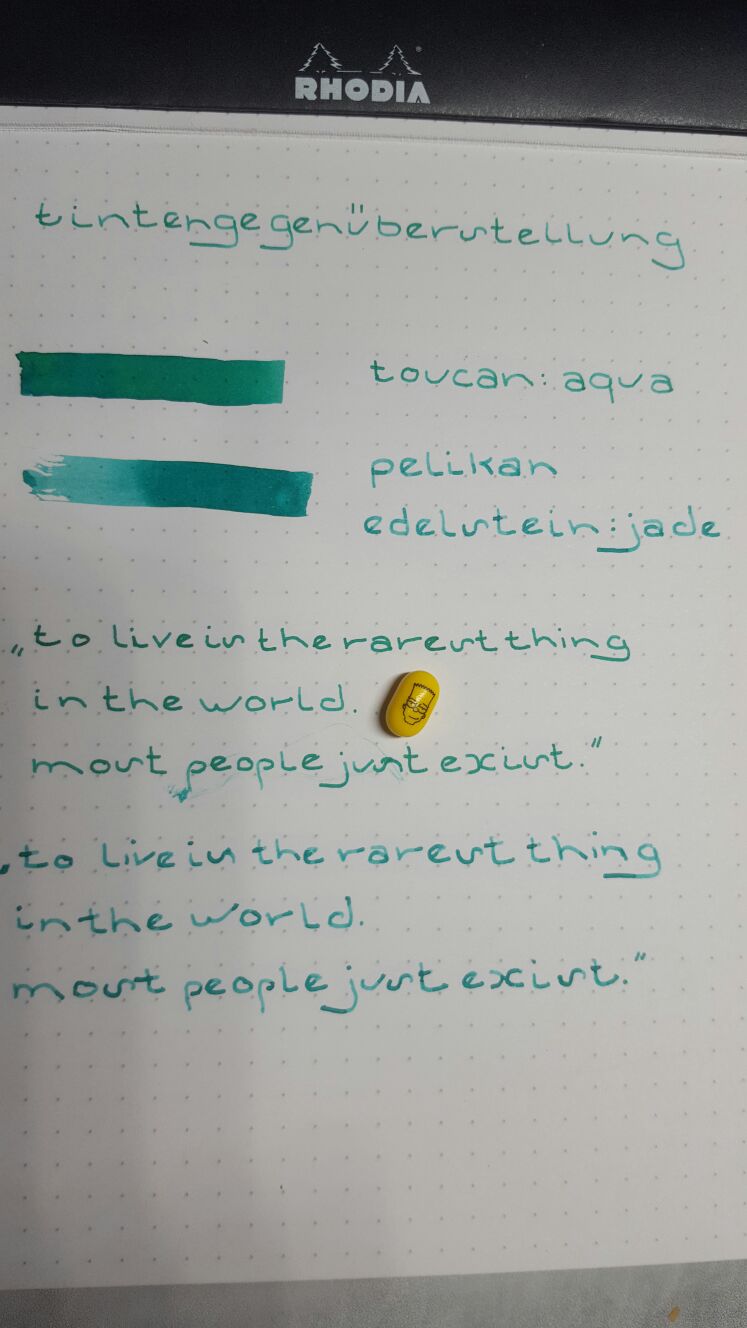 RHODIA
tintengegenüberstellung
toucan: aqua
pelikan
edelstein: jade
„to live is the rarest thing
in the world.
most people just exist."
„to live is the rarest thing
in the world.
most people just exist."